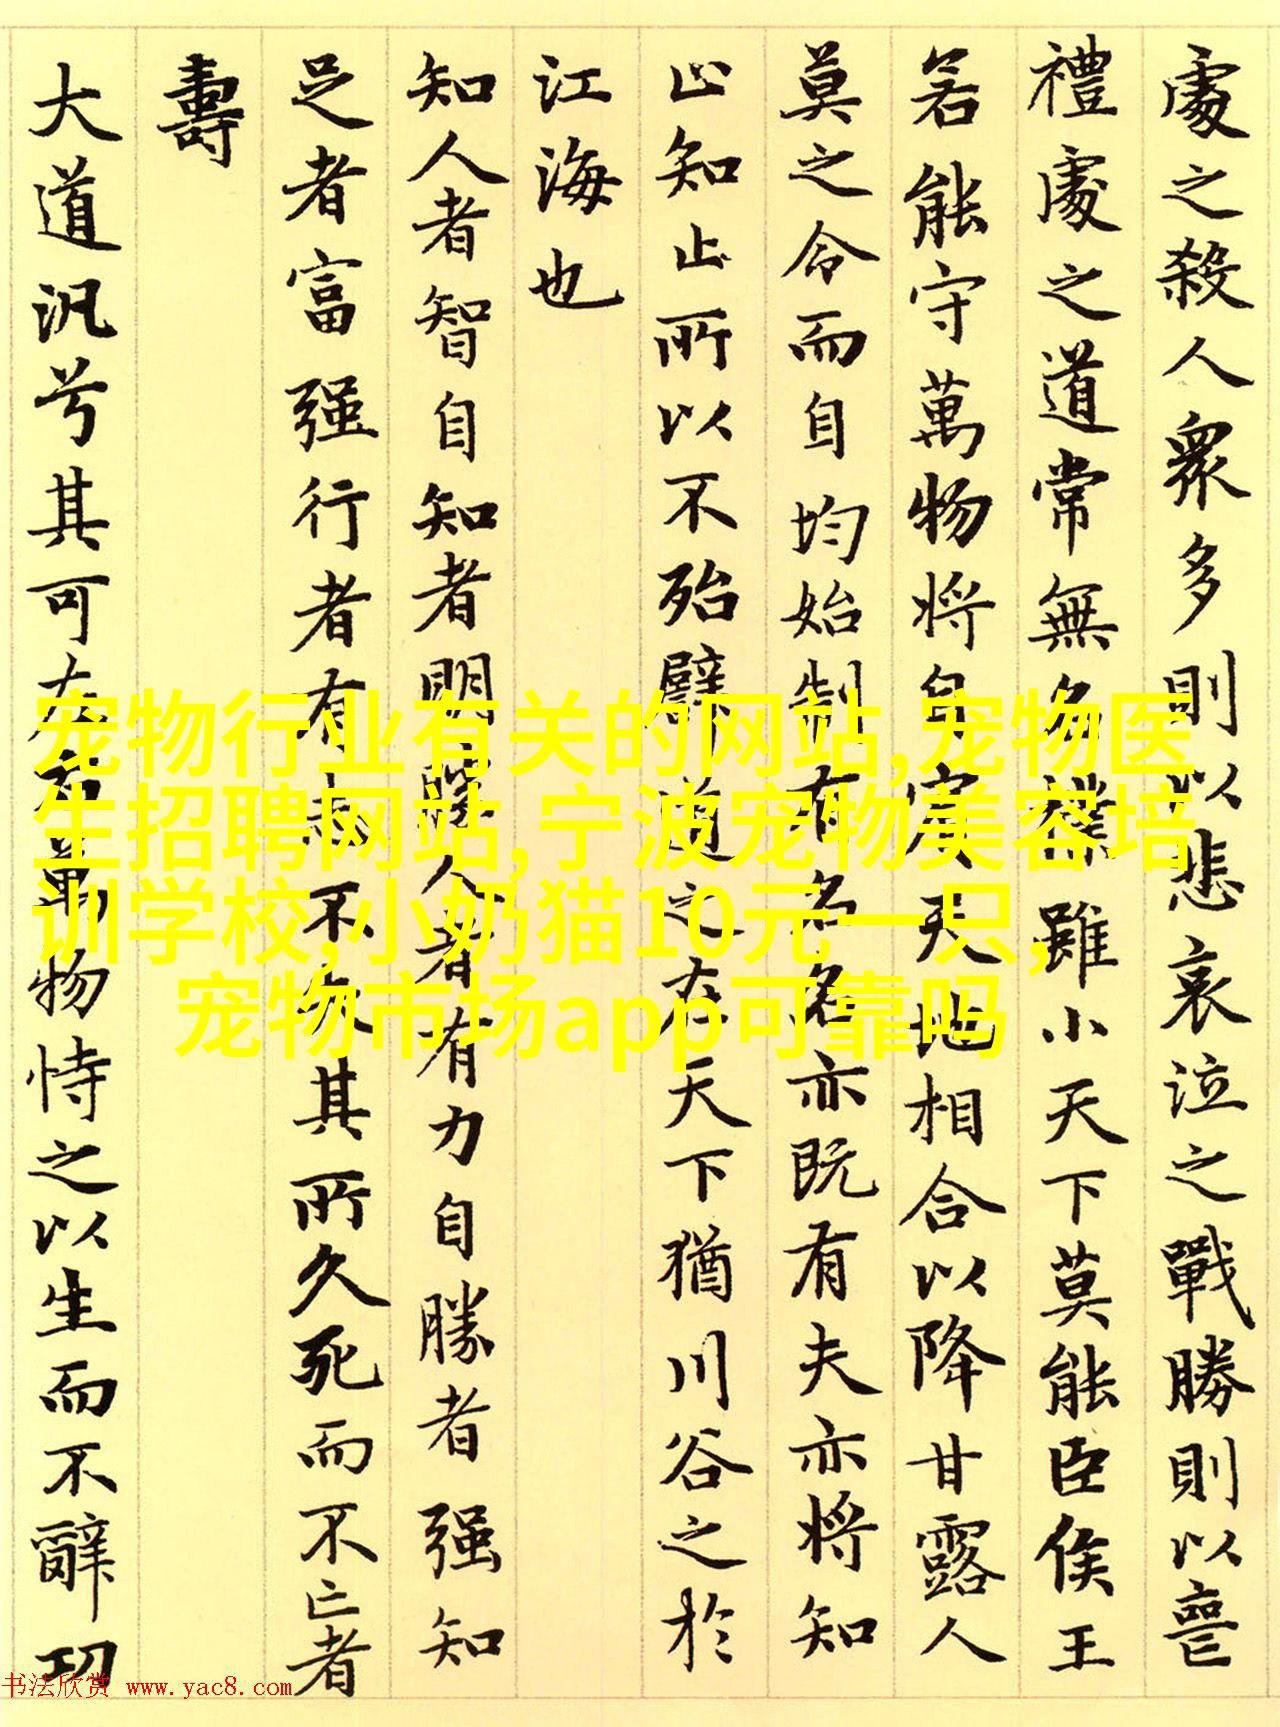 處之殺人衆多則以悲哀泣之戰勝則以喪
禮處之道常無名樸雖小天下莫能臣侯王
若能守萬物將自賓天地相合以降甘露人
莫之令而自均始制有名名亦既有夫亦將知
止知止所以不殆譬道之在天下猶川谷之於
江海也
知人者智自知者明勝人者有力自勝者强知
足者富强行者有志不失其所久死而不亡者
壽
大道汎兮其可左右萬物恃之以生而不辭功
宠物行业有关的网站,宠物医
生招聘网站,宁波宠物美容培
训学校,小奶猫10元一只,
宠物市场app可靠吗
书法欣赏 www.yac8.com